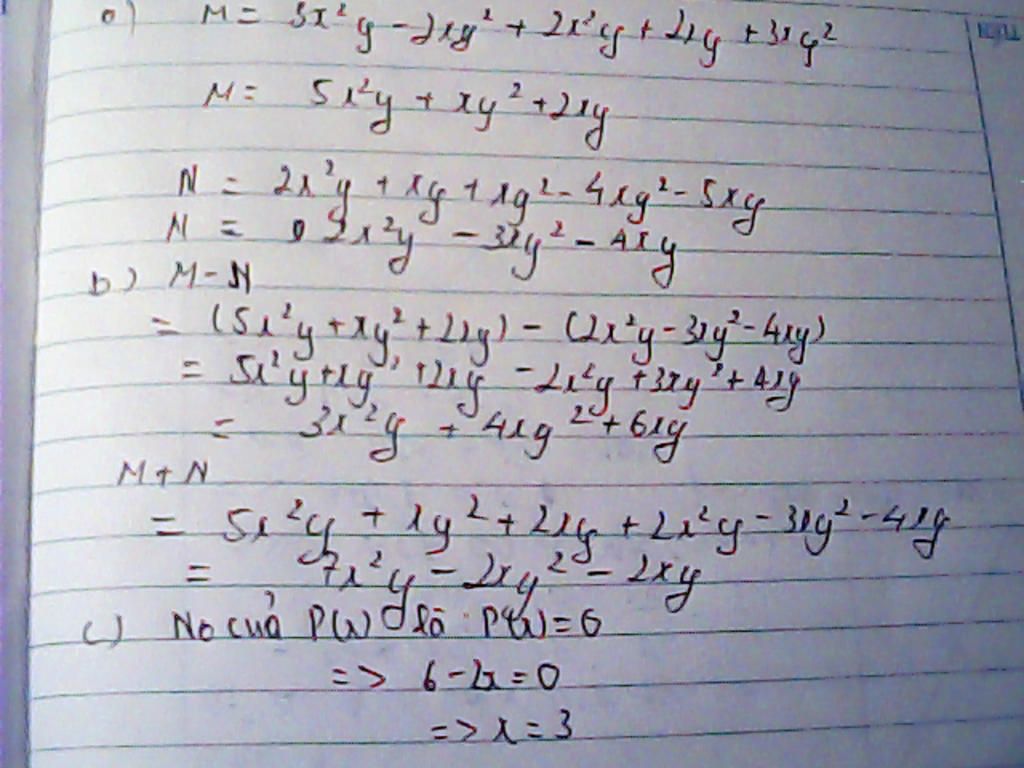 a) M = 3x²y - 2xy² + 2x²y + 2xy + 3xy²
M = 5x²y + xy² + 2xy
N = 2x²y + xy + xy² - 4xy² - 5xy
N = 2x²y - 3xy² - 4xy
b) M - N
= (5x²y + xy² + 2xy) - (2x²y - 3xy² - 4xy)
= 5x²y + xy² + 2xy - 2x²y + 3xy² + 4xy
= 3x²y + 4xy² + 6xy
M + N
= 5x²y + xy² + 2xy + 2x²y - 3xy² - 4xy
= 7x²y - 2xy² - 2xy
c) No của P(x) là P(x) = 0
=> 6 - 2x = 0
=> x = 3